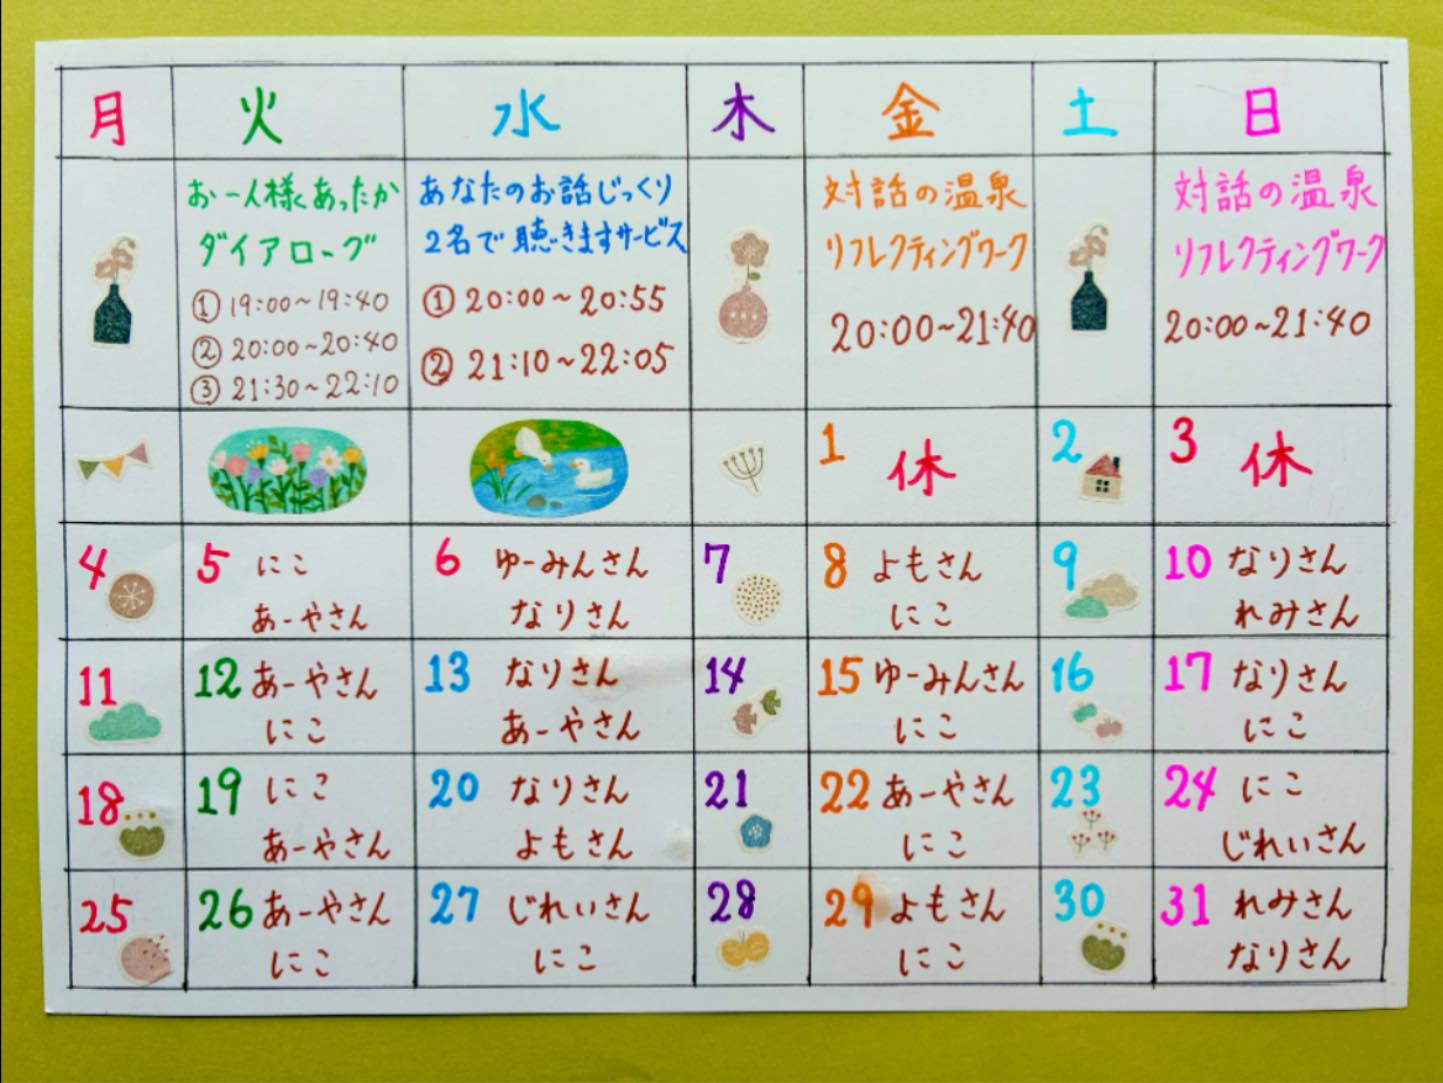 月 火 水 木 金 土 日
お一人様あったか
ダイアローグ
① 19:00~19:40
② 20:00~20:40
③ 21:30~22:10
あなたのお話じっくり
2名で聴きますサービス
① 20:00~20:55
② 21:10~22:05
対話の温泉
リフレクティングワーク
20:00~21:40
対話の温泉
リフレクティングワーク
20:00~21:40
1 休
2
3 休
4
5 にこ
あーやさん
6 ゆーみんさん
なりさん
7
8 よもさん
にこ
9
10 なりさん
れみさん
11
12 あーやさん
にこ
13 なりさん
あーやさん
14
15 ゆーみんさん
にこ
16
17 なりさん
にこ
18
19 にこ
あーやさん
20 なりさん
よもさん
21
22 あーやさん
にこ
23
24 にこ
じれいさん
25
26 あーやさん
にこ
27 じれいさん
にこ
28
29 よもさん
にこ
30
31 れみさん
なりさん